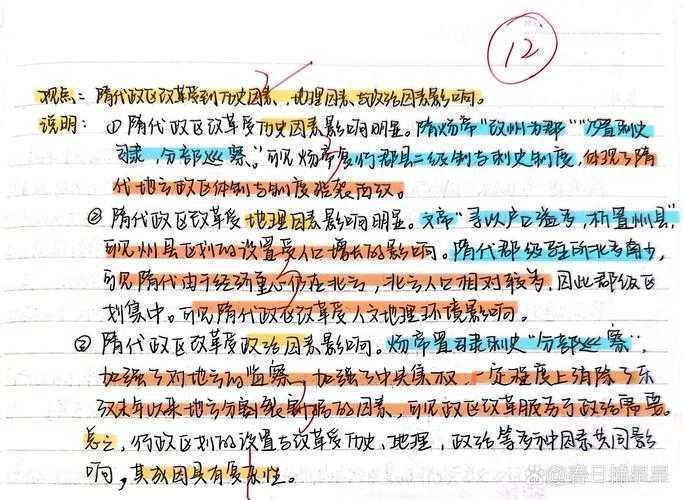 12
观点：隋代政区改革受到历史因素、地理因素、政治因素影响。
说明：①隋代政区改革受历史因素影响明显。隋炀帝“改州为郡”“置刺史
司隶，分部巡察。”可见炀帝复行郡县二级制与刺史制度，体现了隋
代地方政区体制与制度沿袭西汉。
②隋代政区改革受地理因素影响明显。文帝“寻以户口滋多，析置州县”，
可见州县区划的设置受人口增长的影响。隋代郡级驻所北多南少，
可见隋代由于经济重心仍在北方，北方人口相对较多，因此郡级区
划集中。可见隋代政区改革受人文地理环境影响。
③隋代政区改革受政治因素影响。炀帝置司隶刺史“分部巡察”，
加强了对地方的监察，加强了中央集权，一定程度上消除了东
汉末年以来地方分裂割据的因素，可见政区改革服务于政治需要。
总之，行政区划的设置与改革受历史、地理，政治等多种因素共同影
响，其成因具有复杂性。
@春日捕星星